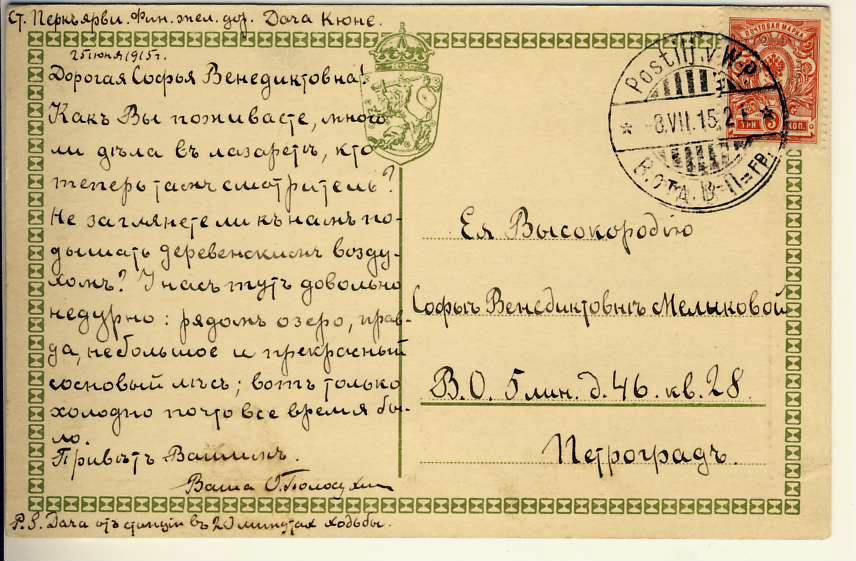 Ст. Перкъярви. Фин. жел. дор. Дача Кюне.
25 июня 1915 г.
Дорогая Софья Венедиктовна!
Какъ Вы поживаете, много
ли дѣла въ лазаретѣ, кто
теперь тамъ смотритель?
Не заглянете ли къ намъ по-
дышать деревенскимъ возду-
хомъ? У насъ тутъ довольно
недурно: рядомъ озеро, прав-
да, небольшое и прекрасный
сосновый лѣсъ; вотъ только
холодно почто все время бы-
ло.
Привѣтъ Вашимъ.
Ваша О.
P.S. Дача отъ станціи въ 20 минутах ходьбы.
Postilj. V. W. p.
8.VII.15.
ПОЧТОВАЯ МАРКА
ТРИ 3 КОП.
Ея Высокородію
Софьѣ Венедиктовнѣ Мелыковой
В.О. 5 лин. д. 46. кв. 28.
Петроградъ.